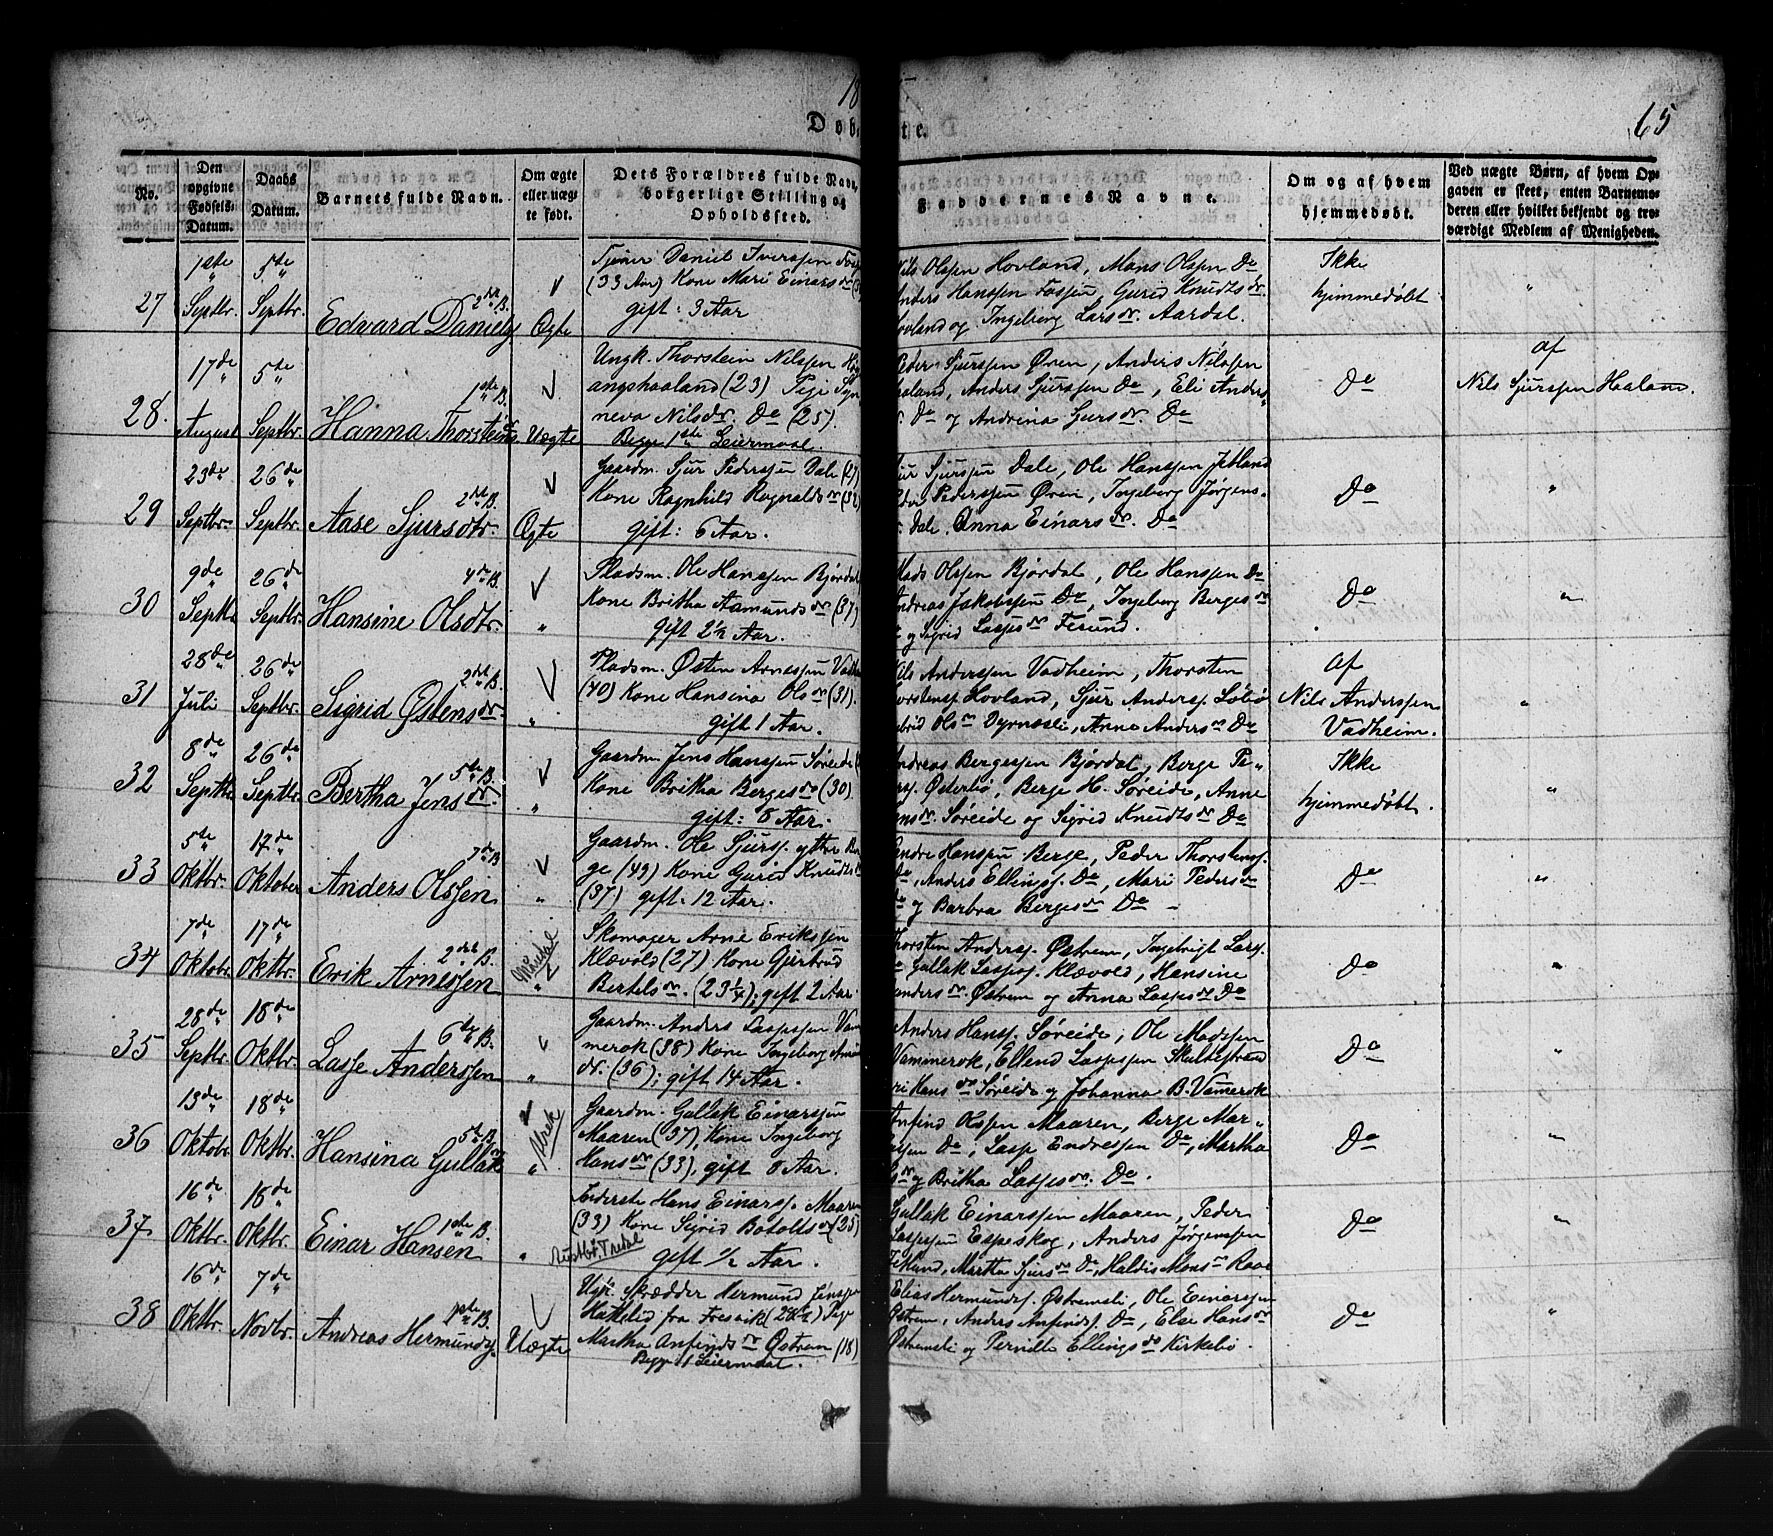 18
65
Døbte.
No.
Den opgivne Fødsels-Datum.
Daabs Datum.
Barnets fulde Navn.
Om ægte eller uægte født.
Dets Forældres fulde Navn, borgerlige Stilling og Opholdssted.
Faddernes Navne.
Om og af hvem hjemmedøbt.
Ved uægte Børn, af hvem Opgaven er skeet, enten Barnemoderen eller hvilket bekjendt og troværdigt Medlem af Menigheden.
27
1ste Septbr.
5te Septbr.
2det B.
Edvard Daniels.
Ægte
Tjener Daniel Iverssen
(33 Aar) Kone Mari Einarsdr
gift: 3 Aar
Nils Olssen Hovland, Mons Olssen Do
Anders Hanssen Fossen, Gurid Knudtsdr.
Hovland og Ingeborg Larsdr. Aardal.
Ikke
hjemmedøbt
"
28.
17de August
5te Septbr.
1ste B.
Hanna Thorsteinsdr
Uægte
Ungk. Thorstein Nilssen
angshaaland (23) Pige Syn
neva Nilsdr. Do (25).
Begge 1ste Leiermaal.
Peder Sjurssen Øren, Anders Nilssen
Haaland, Anders Sjurssen Do, Eli Anders
Do og Andrina Gursdr. Do
Do
af
Nils Sjurssen Haaland.
29
23de Septbr.
26de Septbr.
2det B.
Aase Sjursdtr.
Ægte
Gaardm. Sjur Pederssen Dale (27)
Kone Ragnhild Rognaldsdr (32)
gift: 6 Aar.
Sjurssen Dale, Ole Hanssen Jetland
Peder Pederssen Øren, Ingeborg Jørgens-
Dale. Anna Einarsdr. Do
Do
"
30
9de Septbr
26de Septbr.
4de B.
Hansine Olsdtr.
"
Pladsm. Ole Hanssen Bjørdal
Kone Britha Aamundsdr (37)
gift 2½ Aar.
Mads Olssen Bjørdal, Ole Hanssen Do
Andreas Jakobssen Do, Ingeborg Bergesdr
og Sigrid Lassesdr Fesund.
Do
"
31
28de Juli
26de Septbr.
2det B.
Sigrid Østensdr.
"
Pladsm. Østen Arnessen Vadh
(40) Kone Hansina Olsdr (31).
gift 1 Aar.
Nils Anderssen Vadheim, Thorsten
Thorstenss. Hovland, Sjur Anderss. Løbø
Olsdr Dyrnæsli, Anna Andersdr Do
Af
Nils Anderssen
Vadheim.
"
32
8de Septbr
26de Septbr.
5te B.
Bertha Jensdr.
"
Gaardm Jens Hanssen Søreide
Kone Britha Bergesdr (30)
gift: 8 Aar.
Andreas Bergessen Bjørdal, Berge Pe-
Østerbø, Berge H. Søreide, Anne
Søreide og Sigrid Knudtsdr Do
Ikke
hjemmedøbt.
"
33
5te Oktbr.
17de Oktober
7de B
Anders Olssen
"
Gaardm. Ole Sjurss. yttre Ber
ge (49) Kone Gurid Knudtsdr
(37) gift. 12 Aar.
Endre Hanssen Berge, Peder Thorstenss.
Do, Anders Ellingss. Do, Mari Pedersdr
Do og Barbra Bergesdr Do -
Do
"
34
7de Oktobr.
17de Oktbr.
2det B.
Erik Arnessen
"
Skomager Arne Erikssen
Klævold (27) Kone Gjertrud
Bertelsdr. (23¼); gift 2 Aar.
Thorsten Anderss. Østrem, Ingebrigt Larss.
Do Gullak Lasses. Klævold, Hansine
Andersdr. Østrem og Anna Lassesdr Do
Do
"
35
28de Septbr.
18de Oktbr.
6te B.
Lasse Anderssen
"
Gaardm. Anders Lassessen Vam
merok (38) Kone Ingeborg
dr. (36); gift 14 Aar.
Anders Hanss. Søreide, Ole Madssen
Vammerok, Ellend Lassessen Skultestrand
Hansdr Søreide og Johanna B. Vamerok
Do
"
36
13de Oktobr.
18de Oktbr.
5te B.
Hansina Gullaksdr
"
Gaardm. Gullak Einarssen
Maaren (37), Kone Ingeborg
Hansdr (33), gift 8 Aar.
Anfind Olssen Maaren, Berge Mar-
Do, Lasse Endressen Do, Martha
og Britha Lassesdr. Do.
Do
"
37
16de Oktbr.
18de Oktbr.
1ste B.
Einar Hansen
"
Inderste Hans Einarss. Maaren
(33) Kone Sigrid Botoltsdr (25)
gift ½ Aar.
Gullak Einarssen Maaren, Peder
Lassessen Espeskog, Anders Jørgenssen
Jetland, Martha Sjursdr Do, Haldis Monsdr
Do
"
38
16de Oktbr.
7de Novbr.
1ste B.
Andreas Hermunds.
Uægte
Ugk. Skrædder Hermund Jenssen
Hattelid fra Fresvik (28½) Pige
Martha Anfindsdr Østrem (18)
Begge 1 Leiermaal.
Elias Hermundss. Østremsli, Ole Einarssen
Østrem, Anders Anfindss. Do, Else Hansdr
Østremsli og Pernille Ellingsdr Kirkebø.
Do
"